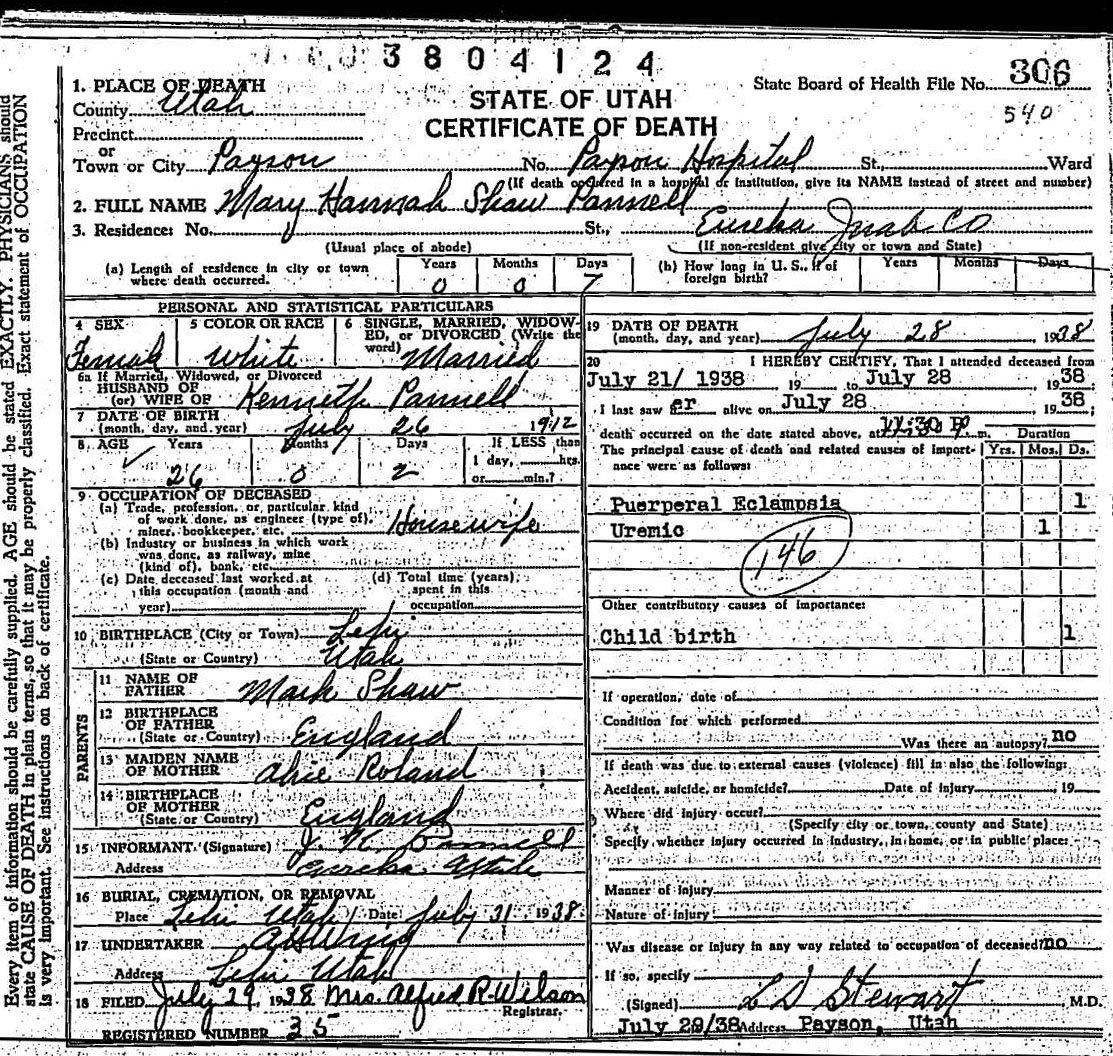 3804124
State Board of Health File No. 306
540
STATE OF UTAH
CERTIFICATE OF DEATH
1. PLACE OF DEATH
County Utah
Precinct
or
Town or City Payson No. Payson Hospital St., Ward
(If death occurred in a hospital or institution, give its NAME instead of street and number)
2. FULL NAME Mary Hannah Shaw Pannell
3. Residence: No. St., Eureka Juab Co
(Usual place of abode) (If non-resident give city or town and State)
(a) Length of residence in city or town where death occurred. Years 0 Months 0 Days 7
(b) How long in U. S., if of foreign birth? Years Months Days
PERSONAL AND STATISTICAL PARTICULARS
4 SEX Female
5 COLOR OR RACE White
6 SINGLE, MARRIED, WIDOWED, or DIVORCED (Write the word) Married
6a If Married, Widowed, or Divorced
HUSBAND OF
(or) WIFE OF Kenneth Pannell
7 DATE OF BIRTH
(month, day, and year) July 26 1912
8 AGE Years 26 Months 0 Days 2 If LESS than
1 day, hrs.
or min.?
9 OCCUPATION OF DECEASED
(a) Trade, profession, or particular kind
of work done, as engineer (type of),
miner, bookkeeper, etc. Housewife
(b) Industry or business in which work
was done, as railway, mine
(kind of), bank, etc.
(c) Date deceased last worked at
this occupation (month and
year)
(d) Total time (years)
spent in this
occupation
10 BIRTHPLACE (City or Town) Lehi
(State or Country) Utah
PARENTS
11 NAME OF
FATHER Mark Shaw
12 BIRTHPLACE
OF FATHER
(State or Country) England
13 MAIDEN NAME
OF MOTHER Alice Roland
14 BIRTHPLACE
OF MOTHER
(State or Country) England
15 INFORMANT (Signature) J. K. Pannell
Address Eureka Utah
16 BURIAL, CREMATION, OR REMOVAL
Place Lehi Utah Date July 31 1938
17 UNDERTAKER
Address Lehi Utah
18 FILED July 29, 1938 Mrs. Alfred R. Wilson
Registrar.
REGISTERED NUMBER 35
19 DATE OF DEATH
(month, day, and year) July 28 1938
20 I HEREBY CERTIFY, That I attended deceased from
July 21/ 1938 19 to July 28 19 38
I last saw er alive on July 28 19 38
death occurred on the date stated above, at 11:30 P m.
Duration
The principal cause of death and related causes of importance were as follows: Yrs. Mos. Ds.
Puerperal Eclampsia 1
Uremic 1
146
Other contributory causes of importance:
Child birth 1
If operation, date of
Condition for which performed
Was there an autopsy? no
If death was due to external causes (violence) fill in also the following:
Accident, suicide, or homicide? Date of injury 19
Where did injury occur?
(Specify city or town, county and State)
Specify whether injury occurred in industry, in home, or in public place:
Manner of injury
Nature of injury
Was disease or injury in any way related to occupation of deceased? no
If so, specify
(Signed) L D Stewart M.D.
July 29/38 Address Payson, Utah
Every item of information should be carefully supplied. AGE should be stated EXACTLY. PHYSICIANS should
state CAUSE OF DEATH in plain terms, so that it may be properly classified. Exact statement of OCCUPATION
is very important. See instructions on back of certificate.